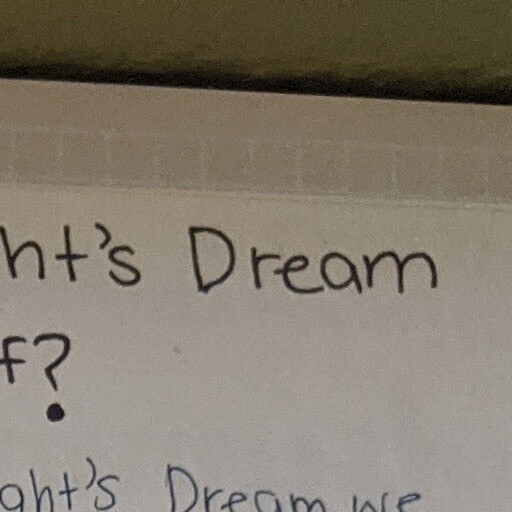 ht's Dream
f?
ght's Dream we